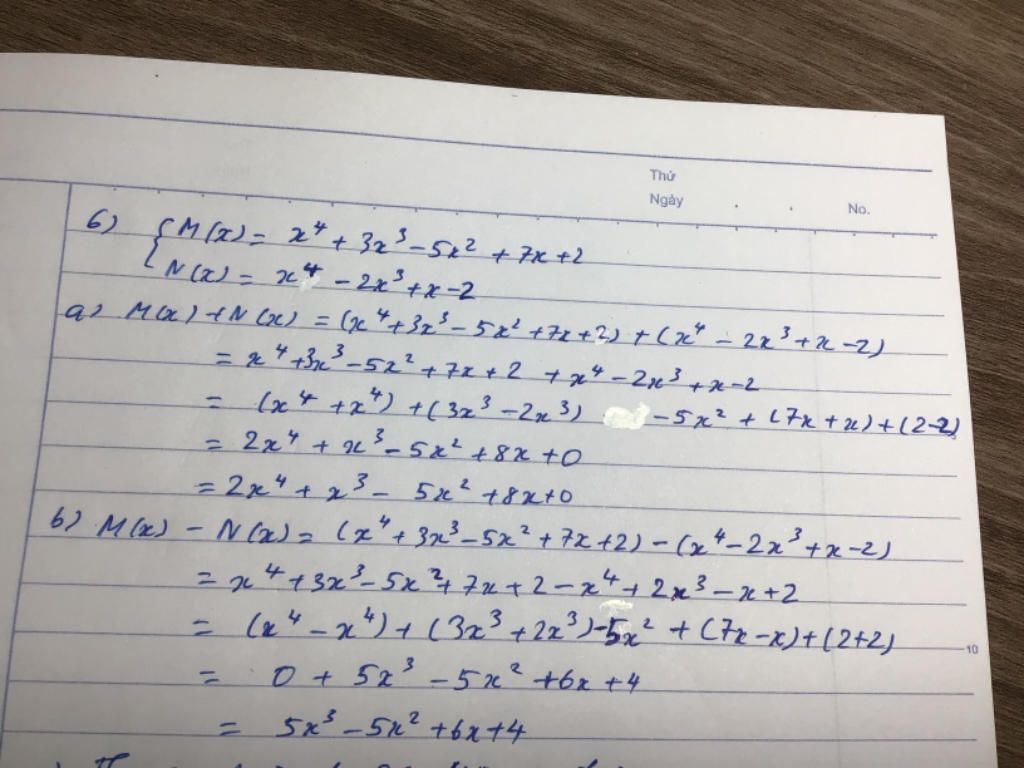 Thứ
Ngày
No.
6) { M(x) = x⁴ + 3x³ - 5x² + 7x + 2
N(x) = x⁴ - 2x³ + x - 2
a) M(x) + N(x) = (x⁴ + 3x³ - 5x² + 7x + 2) + (x⁴ - 2x³ + x - 2)
= x⁴ + 3x³ - 5x² + 7x + 2 + x⁴ - 2x³ + x - 2
= (x⁴ + x⁴) + (3x³ - 2x³) - 5x² + (7x + x) + (2-2)
= 2x⁴ + x³ - 5x² + 8x + 0
= 2x⁴ + x³ - 5x² + 8x + 0
b) M(x) - N(x) = (x⁴ + 3x³ - 5x² + 7x + 2) - (x⁴ - 2x³ + x - 2)
= x⁴ + 3x³ - 5x² + 7x + 2 - x⁴ + 2x³ - x + 2
= (x⁴ - x⁴) + (3x³ + 2x³) - 5x² + (7x - x) + (2+2)
10
= 0 + 5x³ - 5x² + 6x + 4
= 5x³ - 5x² + 6x + 4